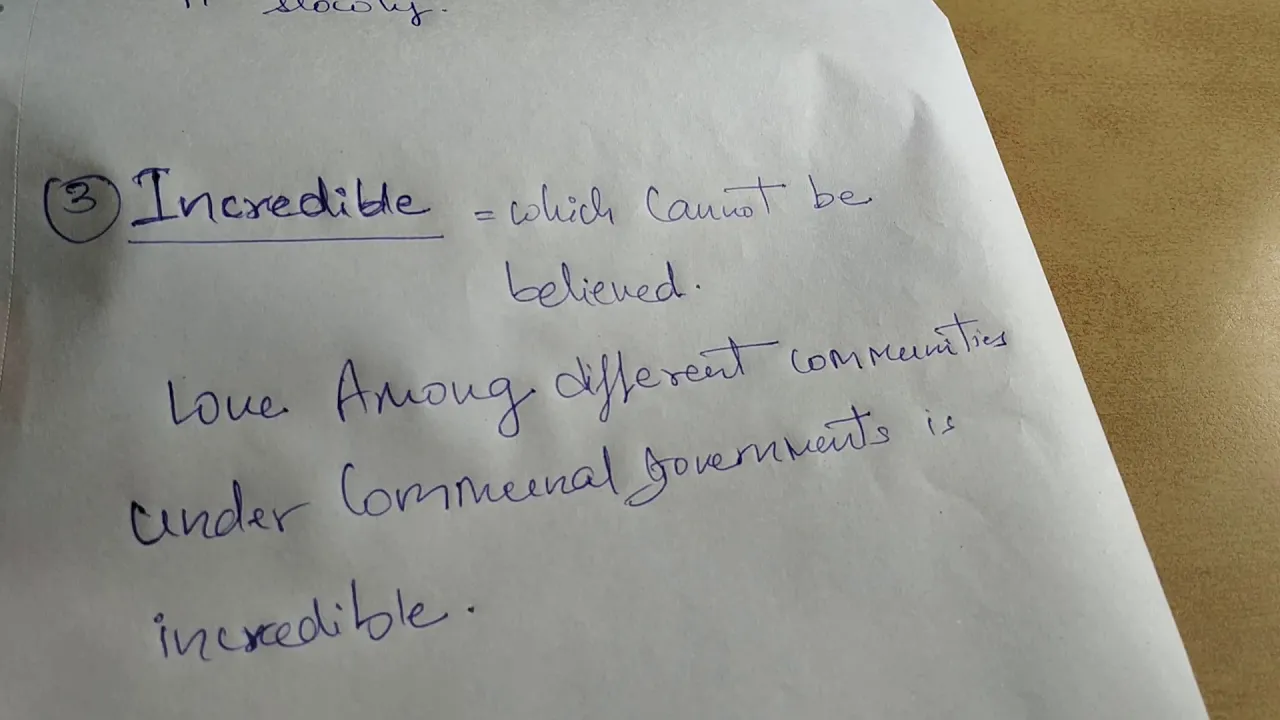 slowly.
③ Incredible = which Cannot be
believed.
Love Among different communities
under Communal governments is
incredible.